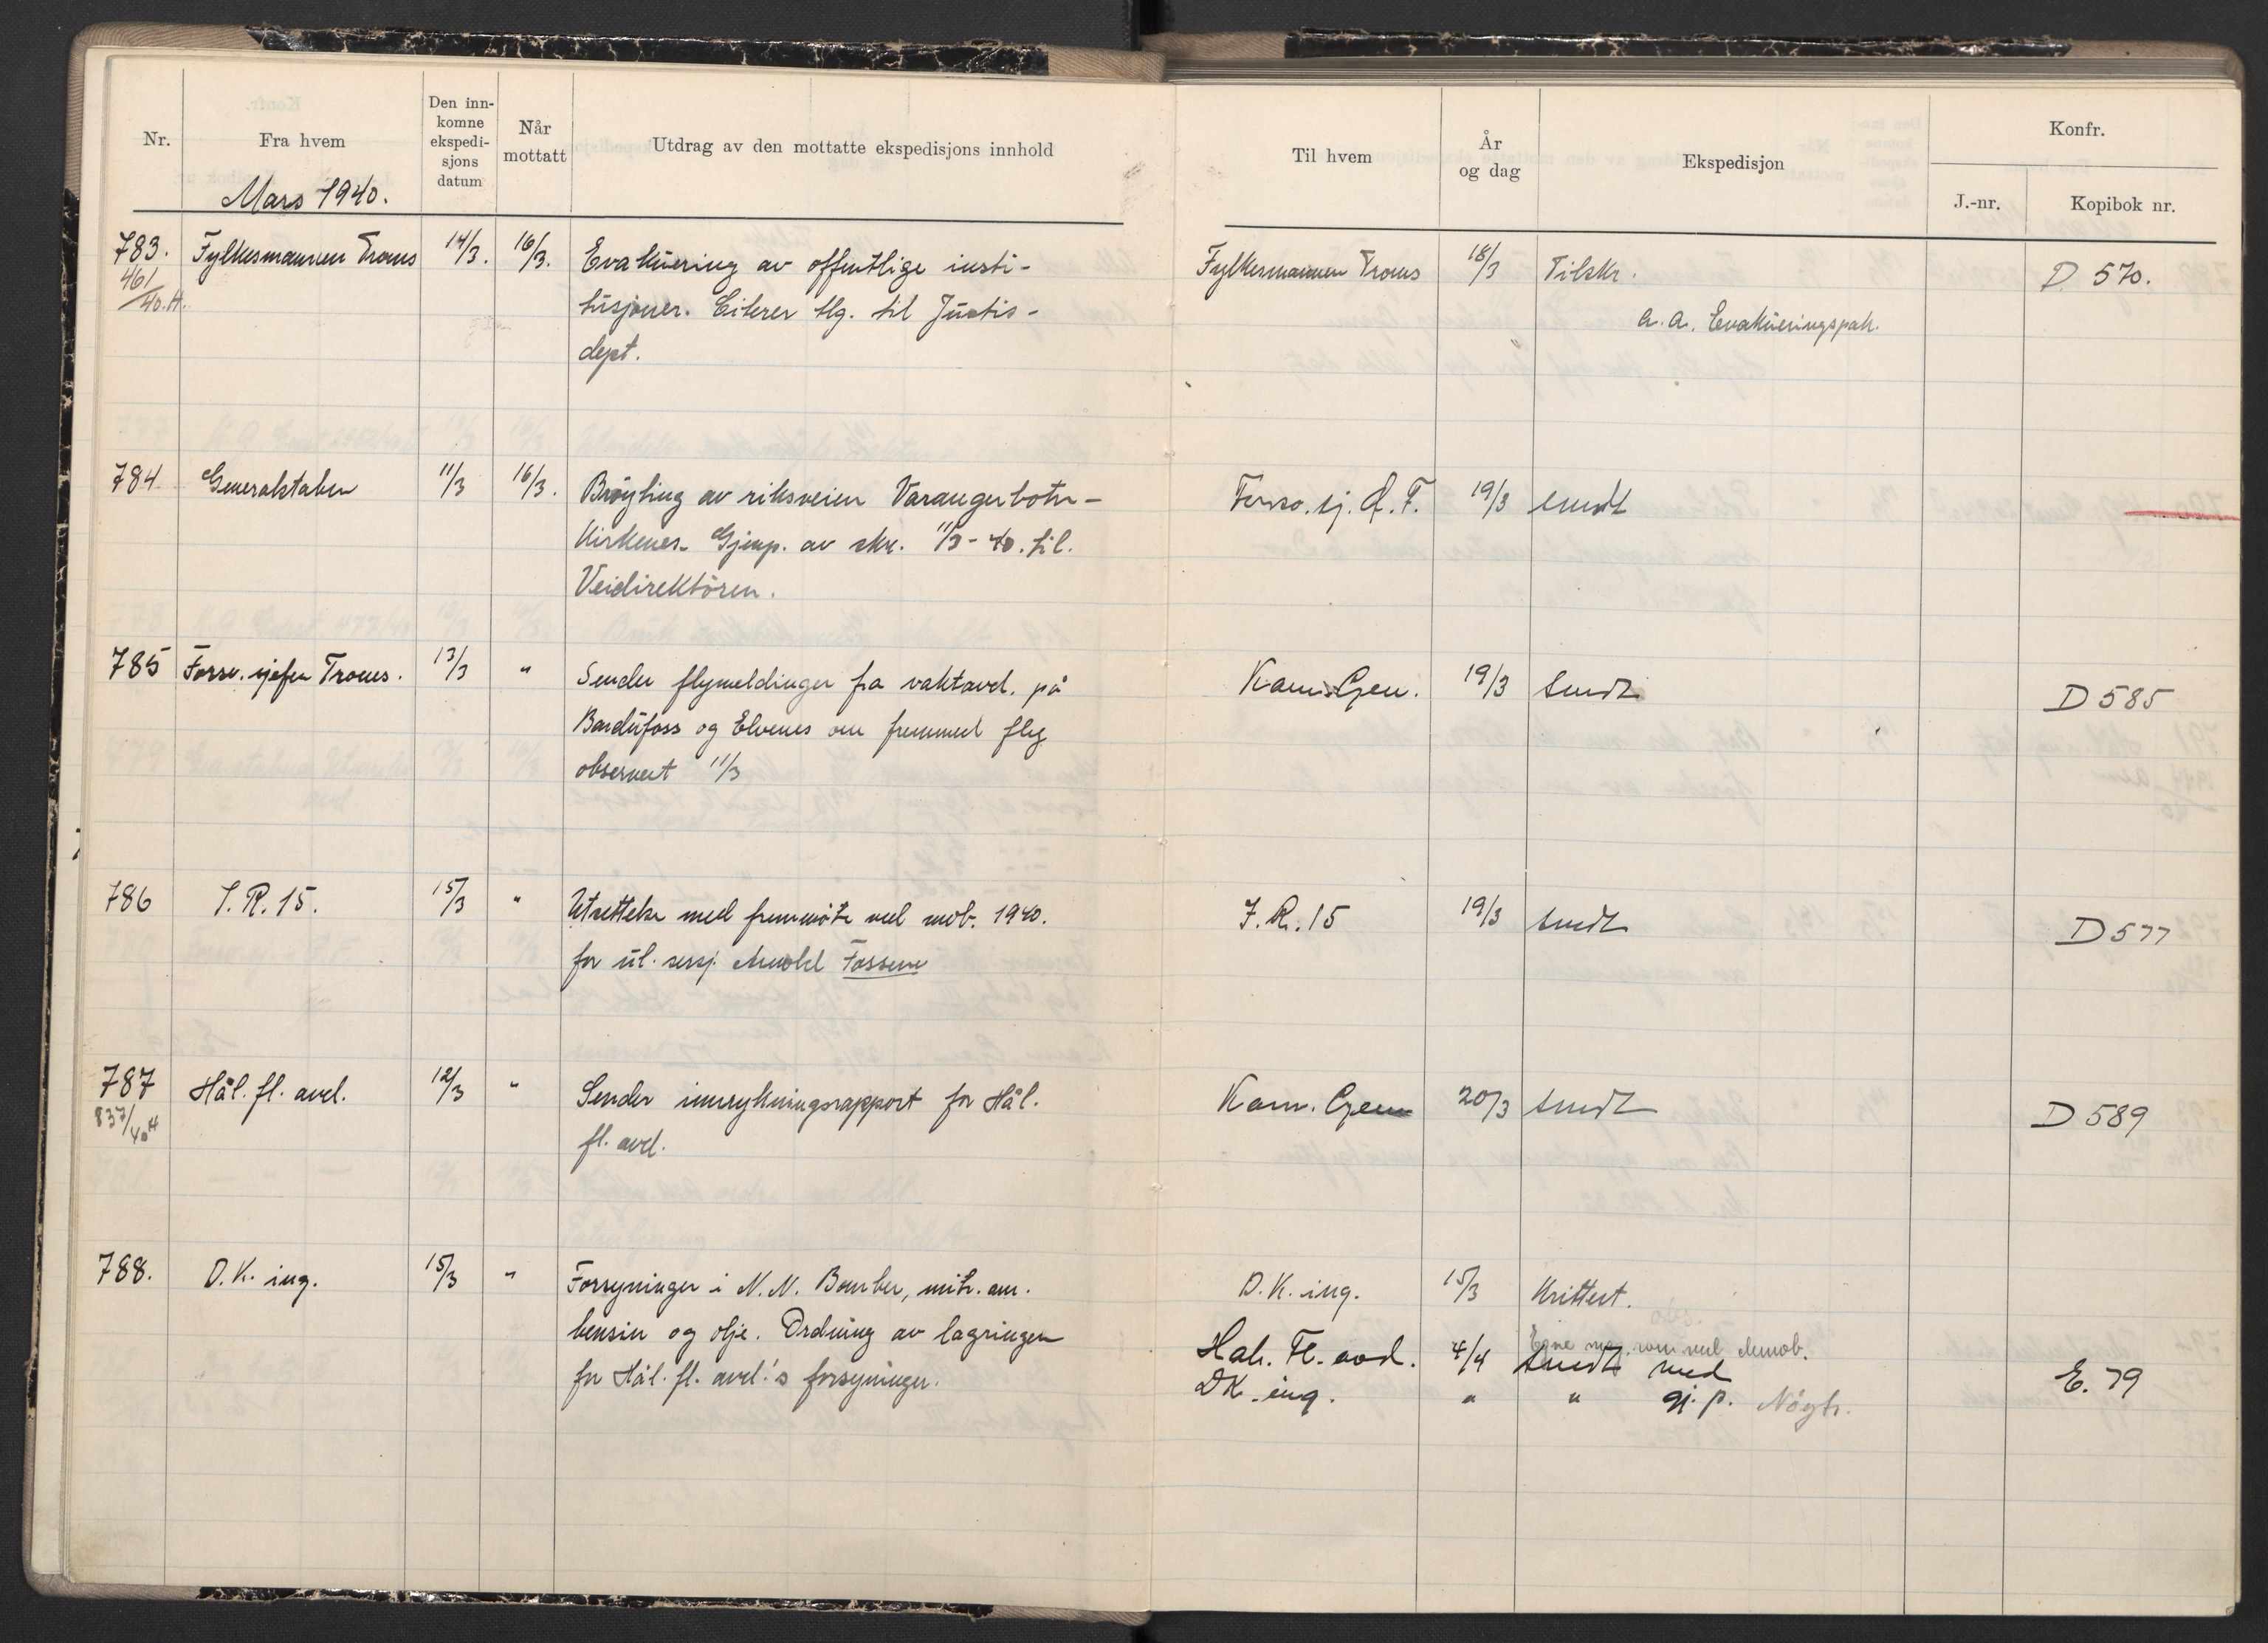 Nr.
Fra hvem
Den inn-
komne
ekspedi-
sjons
datum
Når
mottatt
Utdrag av den mottatte ekspedisjons innhold
Til hvem
År
og dag
Ekspedisjon
Konfr.
J.-nr.
Kopibok nr.
Mars 1940.
783. Fylkesmannen Troms 14/3. 16/3. Evakuering av offentlige insti-
461
/40.H.
tusjoner. Citerer tlg. til Justis-
dept.
Fylkesmannen Troms 18/3 Tilskr. D. 570.
a.a. Evakueringspak.
784 Generalstaben 11/3 16/3. Brøyting av riksveien Varangerbotn-
Kirkenes. Gjenp. av skr. 11/3-40. til.
Veidirektören.
19/3 sendt
785 Forsv. sjefen Troms. 13/3 " Sender flymeldinger fra vaktavd. på
Bardufoss og Elvenes om fremmed fly
observert 11/3
Kom. Gen. 19/3 sendt D 585
786 I.R. 15. 15/3 " Utsettelse med fremmöte ved mob. 1940.
for ul. sersj. Arnold Fossene
I.R. 15 19/3 sendt D 577
787 Hål. fl. avd. 12/3 " Sender innrykningsrapport for Hål.
837/40 H
fl. avd.
Kom. Gen 20/3 sendt D 589
788. D.K. ing. 15/3 " Forsyninger i N.N. Bomber, mitr. am.
bensin og olje. Ordning av lagringen
for Hål. fl. avd.'s forsyninger.
D.K. ing. 15/3 Krittert.
Hal. Fl. avd. 4/4 sendt med E. 79
DK. ing. " " gj.p. Nögt.